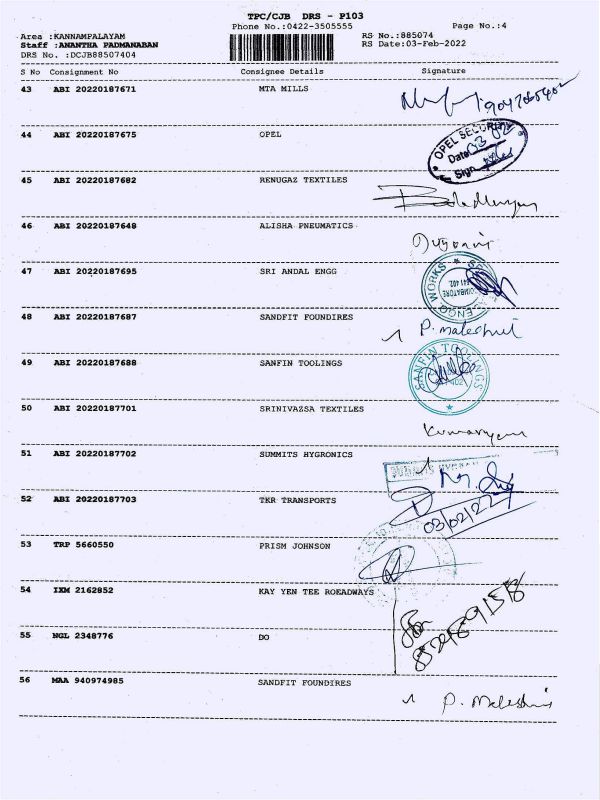 TPC/CJB DRS - P103
Phone No.:0422-3505555
Page No.:4
Area :KANNAMPALAYAM
RS No.:885074
Staff :ANANTHA PADMANABAN
RS Date:03-Feb-2022
DRS No. :DCJB88507404
S No Consignment No Consignee Details Signature
43 ABI 20220187671 MTA MILLS
44 ABI 20220187675 OPEL
OPEL SECURITY
Date
Sign
45 ABI 20220187682 RENUGAZ TEXTILES
46 ABI 20220187648 ALISHA PNEUMATICS
47 ABI 20220187695 SRI ANDAL ENGG
48 ABI 20220187687 SANDFIT FOUNDIRES
49 ABI 20220187688 SANFIN TOOLINGS
SANFIN TOOLINGS
50 ABI 20220187701 SRINIVAZSA TEXTILES
51 ABI 20220187702 SUMMITS HYGRONICS
52 ABI 20220187703 TKR TRANSPORTS
03/02/22
53 TRP 5660550 PRISM JOHNSON
54 IXM 2162852 KAY YEN TEE ROEADWAYS
55 NGL 2348776 DO
56 MAA 940974985 SANDFIT FOUNDIRES